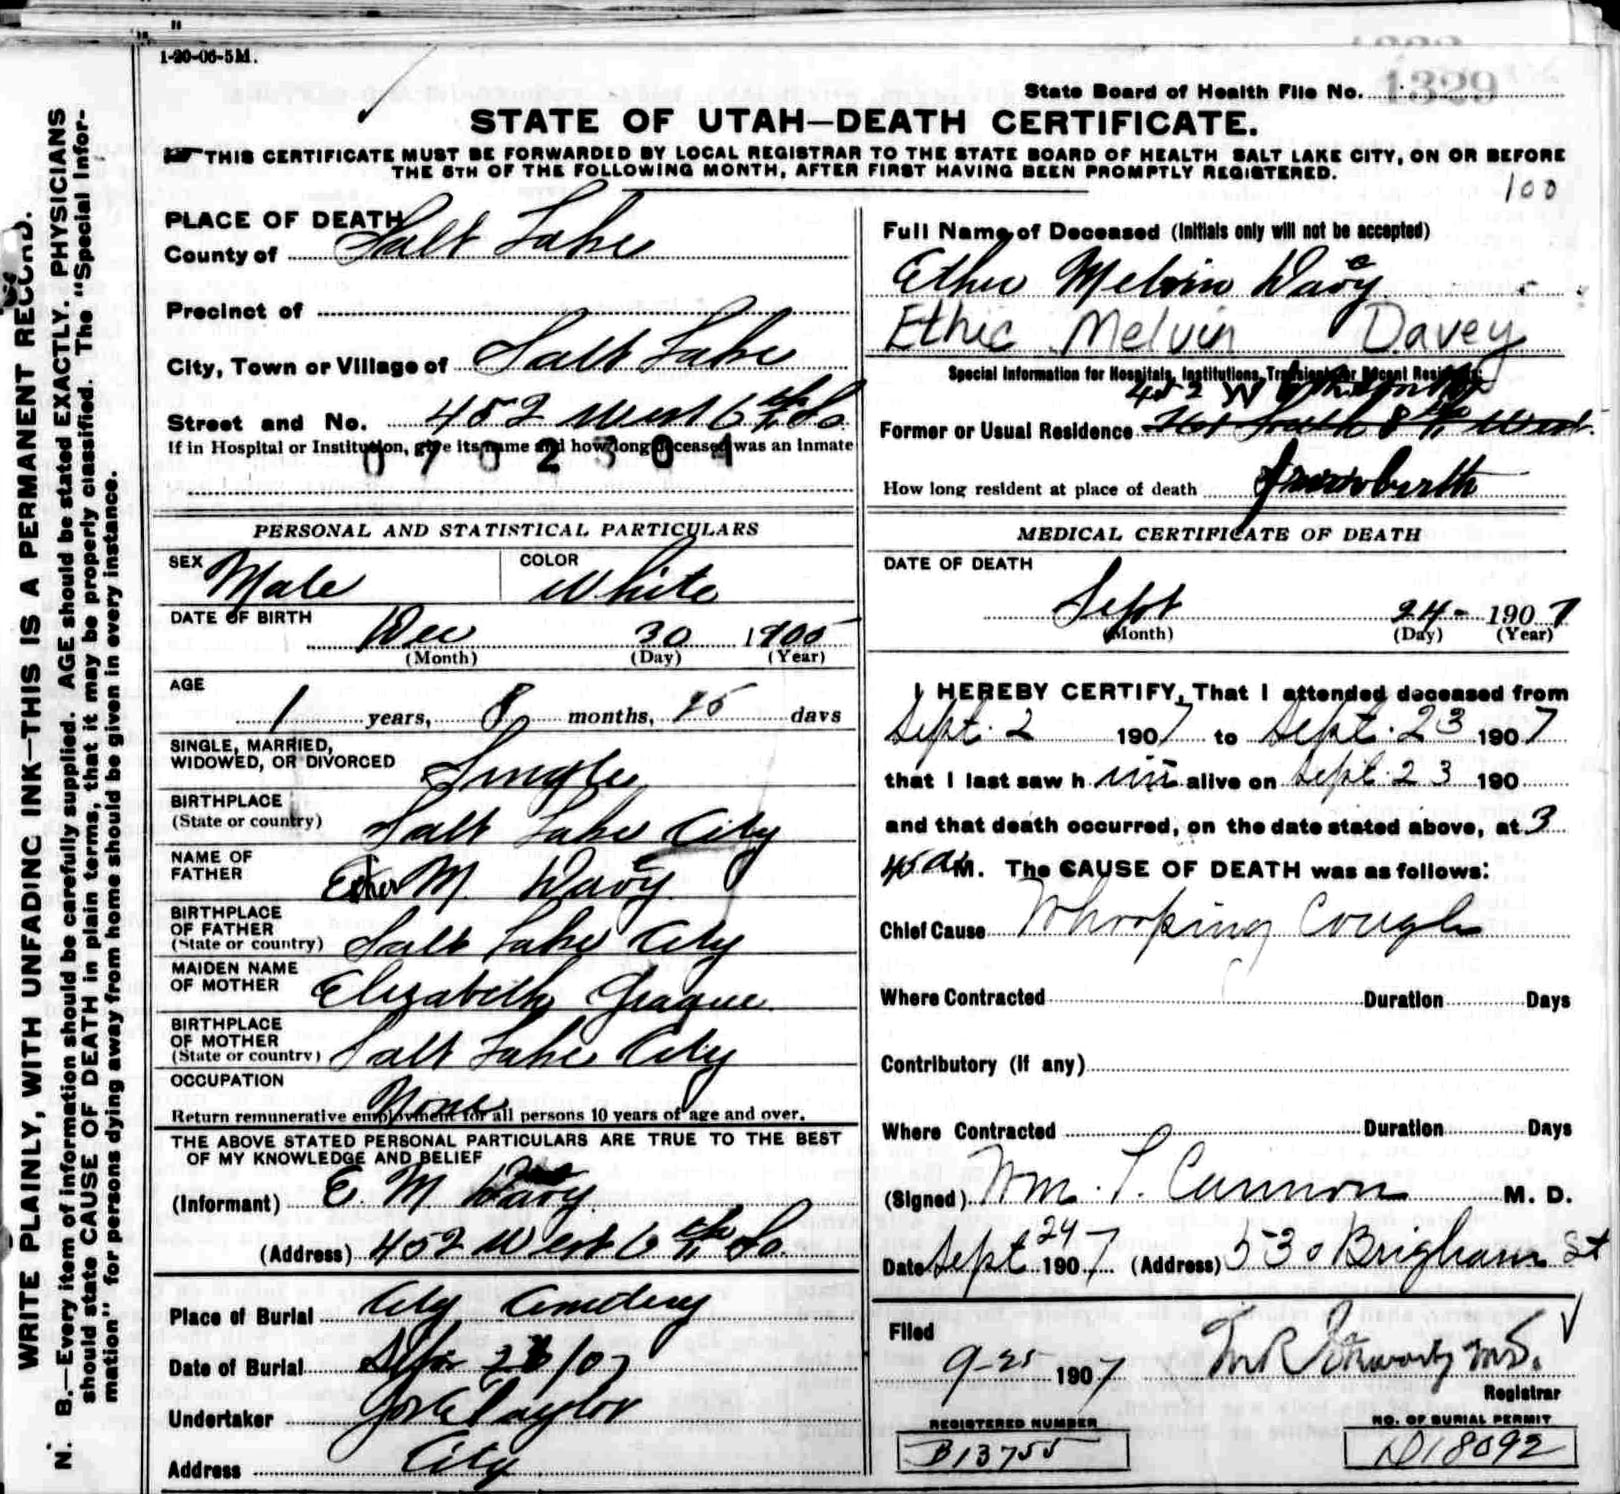 1-20-06-5M.
State Board of Health File No. 1329
STATE OF UTAH—DEATH CERTIFICATE.
THIS CERTIFICATE MUST BE FORWARDED BY LOCAL REGISTRAR TO THE STATE BOARD OF HEALTH SALT LAKE CITY, ON OR BEFORE
THE 5TH OF THE FOLLOWING MONTH, AFTER FIRST HAVING BEEN PROMPTLY REGISTERED.
100
WRITE PLAINLY, WITH UNFADING INK—THIS IS A PERMANENT RECORD.
N. B.—Every item of information should be carefully supplied. AGE should be stated EXACTLY. PHYSICIANS
should state CAUSE OF DEATH in plain terms, that it may be properly classified. The "Special Infor-
mation" for persons dying away from home should be given in every instance.
PLACE OF DEATH
County of Salt Lake
Precinct of
City, Town or Village of Salt Lake
Street and No. 452 West 6th So
If in Hospital or Institution, give its name and how long deceased was an inmate
0702301
PERSONAL AND STATISTICAL PARTICULARS
SEX Male COLOR White
DATE OF BIRTH
Dec 30 1905
(Month) (Day) (Year)
AGE
1 years, 8 months, 25 days
SINGLE, MARRIED,
WIDOWED, OR DIVORCED Single
BIRTHPLACE
(State or country) Salt Lake City
NAME OF
FATHER Ether M. Davey
BIRTHPLACE
OF FATHER
(State or country) Salt Lake City
MAIDEN NAME
OF MOTHER Elizabeth
BIRTHPLACE
OF MOTHER
(State or country) Salt Lake City
OCCUPATION
None
Return remunerative employment for all persons 10 years of age and over.
THE ABOVE STATED PERSONAL PARTICULARS ARE TRUE TO THE BEST
OF MY KNOWLEDGE AND BELIEF
(Informant) E. M. Davy
(Address) 452 West 6th So.
Place of Burial City Cemetery
Date of Burial /07
Undertaker Taylor
Address City
Full Name of Deceased (Initials only will not be accepted)
Ether Melvin Davey
Ethie Melvin Davey
Special Information for Hospitals, Institutions, Transients or Recent Residents
452 W
Former or Usual Residence South 8th West.
How long resident at place of death from birth
MEDICAL CERTIFICATE OF DEATH
DATE OF DEATH
Sept 24- 1907
(Month) (Day) (Year)
I HEREBY CERTIFY, That I attended deceased from
Sept. 2 1907 to Sept. 23 1907
that I last saw him alive on Sept. 23 190
and that death occurred, on the date stated above, at 3
45 a M. The CAUSE OF DEATH was as follows:
Chief Cause Whooping Cough
Where Contracted Duration Days
Contributory (if any)
Where Contracted Duration Days
(Signed) Wm. T. Cannon M. D.
Date Sept 24 1907 (Address) 530 Brigham St
Filed
9-25 1907
Registrar
REGISTERED NUMBER
B13755
NO. OF BURIAL PERMIT
D18092